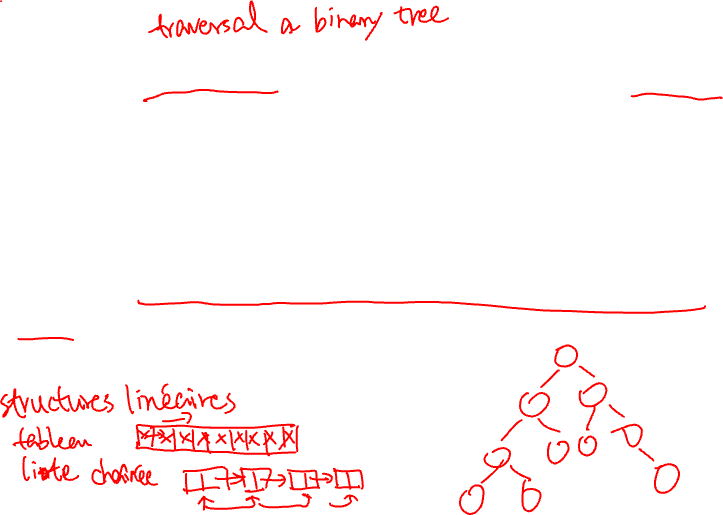 traversal a binary tree
structures linéaires
tableau
liste chaînée